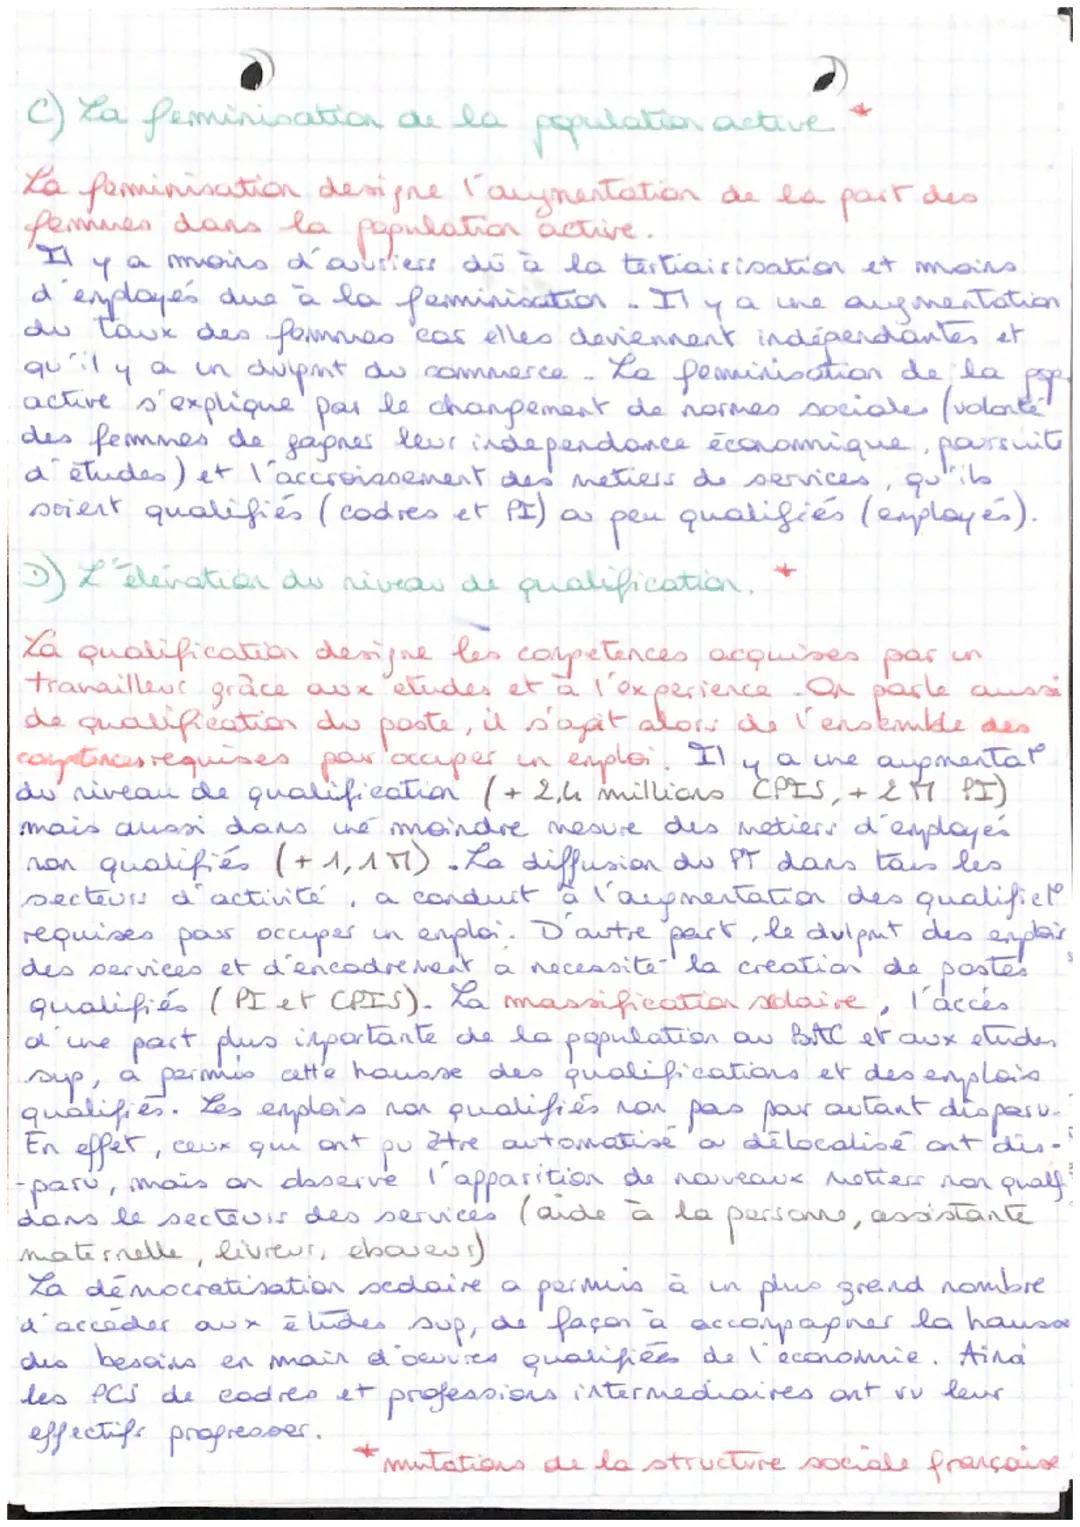 C) La feminisation de la population active *
La feminisation designe l'augmentation de la part des
femmes dans la population active.
Il y a moins d'ouvriers dû à la tertiairisation et moins
d'employés due à la feminisation. Il y a une augmentation
du taux des femmes car elles deviennent indépendantes et
qu'il y a un dvlpmt du commerce. La feminisation de la pop
active s'explique par le changement de normes sociales (volonté
des femmes de gagner leur independance économique, poursuite
d'études) et l'accroissement des metiers de services, qu'ils
soient qualifiés (cadres et PI) ou peu qualifiés (employés).
D) L'élévation du niveau de qualification. *
La qualification designe les competences acquises par un
travailleur grâce aux études et à l'experience. On parle aussi
de qualification du poste, il s'agit alors de l'ensemble des
competences requises pour occuper un emploi. Il y a une augmentat°
du niveau de qualification (+ 2,4 millions CPIS, + 2M PI)
mais aussi dans une moindre mesure des metiers d'employés
non qualifiés (+ 1,1M). La diffusion du PT dans tous les
secteurs d'activité, a conduit à l'augmentation des qualificat°
requises pour occuper un emploi. D'autre part, le dvlpmt des emplois
des services et d'encadrement a necessité la création de postes
qualifiés (PI et CPIS). La massification scolaire, l'accès
d'une part plus importante de la population au BAC et aux etudes
sup, a permis cette hausse des qualifications et des emplois
qualifiés. Les emplois non qualifiés non pas pour autant disparu.
En effet, ceux qui ont pu être automatisé ou délocalisé ont dis-
-paru, mais on observe l'apparition de nouveaux metiers non qualif
dans le secteurs des services (aide à la personne, assistante
maternelle, livreur, eboueur)
La démocratisation scolaire a permis à un plus grand nombre
d'accéder aux études sup, de façon à accompagner la hausse
des besoins en main d'oeuvres qualifiées de l'économie. Ainsi
les PCS de cadres et professions intermediaires ont vu leur
effectifs progresser.
* mutations de la structure sociale française